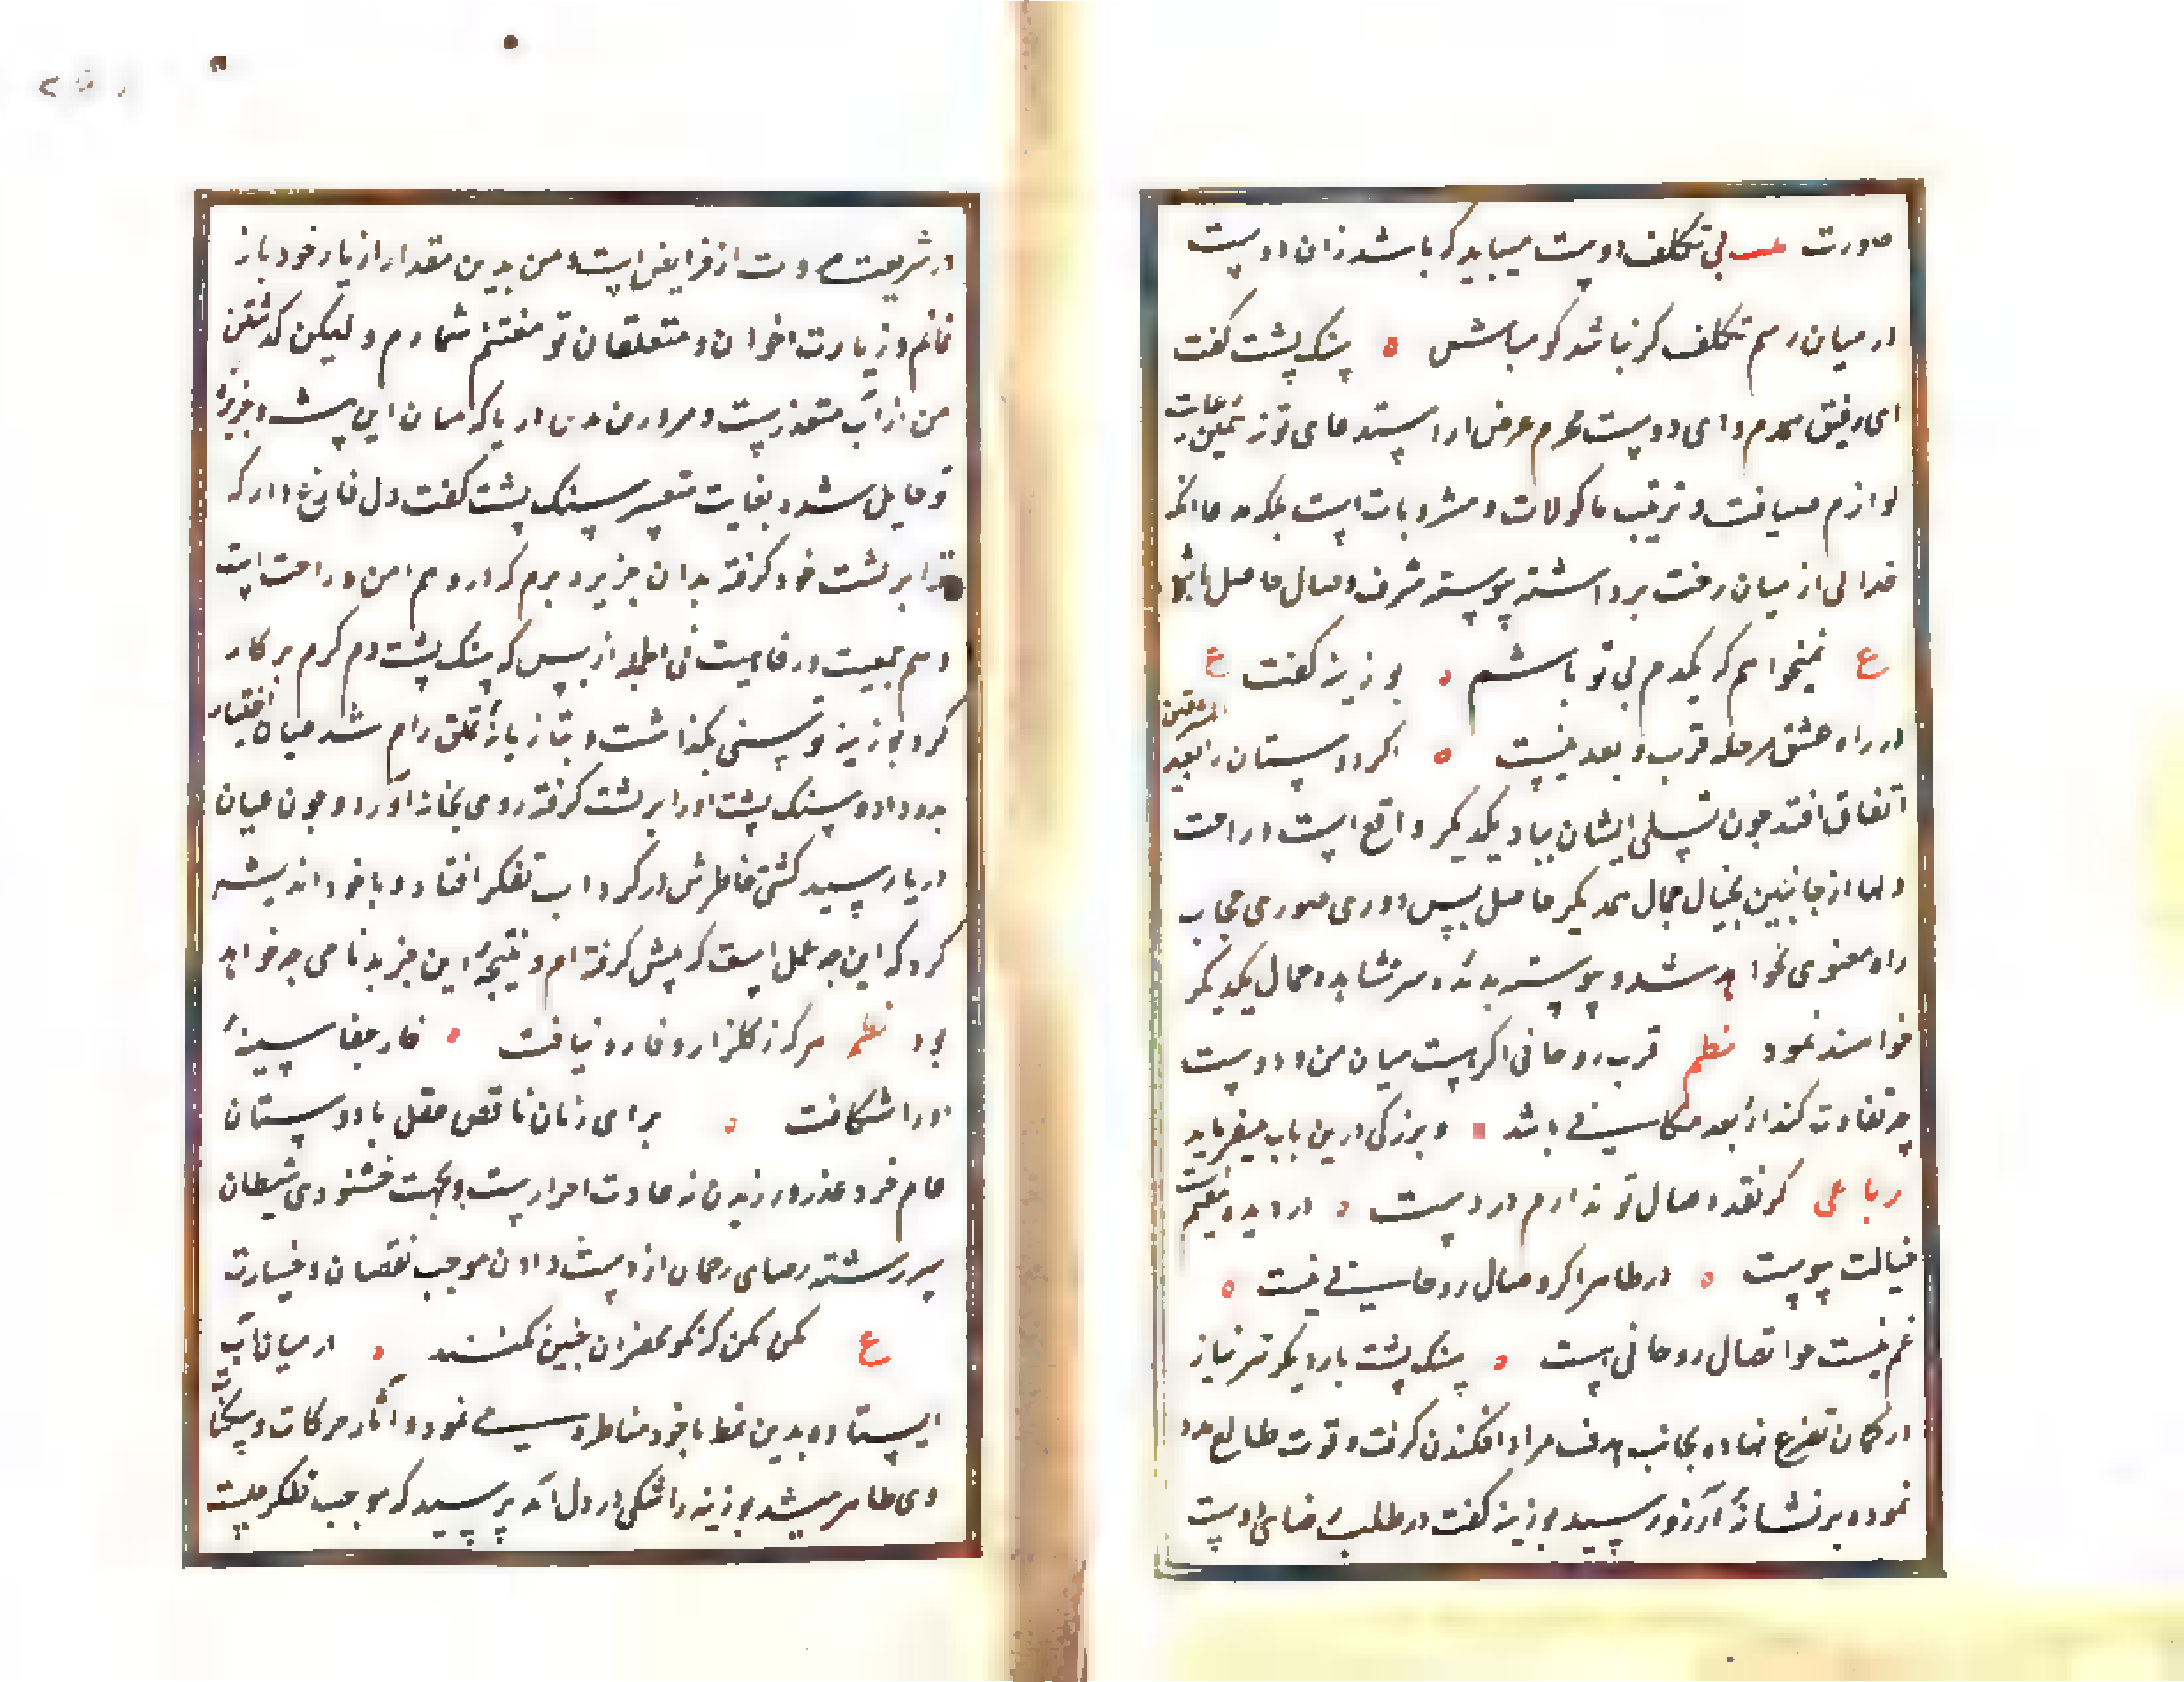 صورت بی تکلف دوست میباید که باشد زان دوست
در میان رسم تکلف گر نباشد گو مباش ه سنک پشت کفت
ای رفیق همدم و ای دوست محرم غرض از استدعای تو نه تمهید
لوازم ضیافت و ترتیب ماکولات و مشروبات است بلکه مدعا انکه
از میان رخت برداشته پیوسته شرف وصال حاصل باشد
ع نمیخواهم که یکدم بی تو باشم ه بوزینه کفت ع
در راه عشق مرحله قرب و بعد نیست ه اکر دوستان را بعد المشرقین
اتفاق افتد چون تسلی ایشان بیاد یکدیکر واقع است و راحت
دلها از جانبین بخیال جمال همدیکر حاصل پس دوری صوری حجاب
راه معنوی نخواهد شد و پیوسته بدیده سر مشاهده جمال یکدیکر
خواهند نمود نظم قرب روحانی اکر هست میان من و دوست
چه تفاوت کند ار بعد مکانی باشد و بزرکی درین باب میفرماید
رباعی کر نقد وصال تو ندارم در دست ه در دیده
خیالت پیوست ه در ظاهر اکر وصال روحانی نیست ه
غم نیست چو اتصال روحانی هست ه سنک پشت بار دیکر تیر نیاز
در کمان تضرع نهاده بجانب هدف مراد افکندن کرفت و قوت طالع مدد
نموده بر نشانه آرزو رسید بوزینه کفت در طلب رضای دوست
در شریعت مروت از فرایض است و من بدین مقدار از یار خود باز
نمانم و زیارت اخوان و متعلقان تو مغتنم شمارم و لیکن کدشتن
من از آب متعذر است و مرور من بدین دریا که میان این بیشه و جزیره
تو حایل شده بغایت متعسر سنک پشت کفت دل فارغ دار که
ترا بر پشت خود کرفته بدان جزیره برم که درو هم امن و راحت است
و هم جمعیت و رفاهیت فی الجمله از بس که سنک پشت دم کرم بر کار
کرد بوزینه توسنی بکذاشت و بتازیانه تملق رام شد عنان اختیار
بدو داد و سنک پشت او را بر پشت کرفته روی بخانه آورد و چون میان
دریا رسید کشتی خاطرش در کرداب تفکر افتاد و با خود اندیشه
کرد که این چه عمل است که پیش کرفته ام و نتیجه این جز بدنامی چه خواهد
بود نظم هرکز کلزار وفا رو نیافت ه خار جفا سینه
او را شکافت ه برای زنان ناقص عقل با دوستان
تمام خرد غدر ورزیدن نه عادت احرار است و بجهت خشنودی شیطان
سر رشته رضای رحمان از دست دادن موجب نقصان و خسارت
ع مکن مکن که نکو محضران چنین نکنند ه در میان آب
ایستاده بدین نمط با خود مناظره می نمود و آثار حرکات و سکنات
وی ظاهر میشد بوزینه را شکی در دل آمد پرسید که موجب تفکر چیست